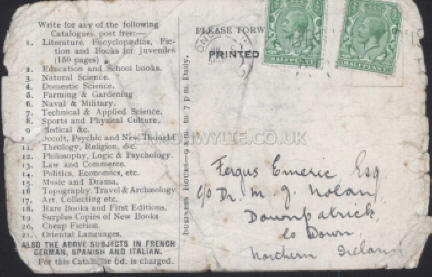 Write for any of the following
Catalogues, post free:—
1. Literature, Encyclopædias, Fic-
tion and Books for Juveniles
(150 pages)
2. Education and School books.
3. Natural Science.
4. Domestic Science.
5. Farming & Gardening
6. Naval & Military.
7. Technical & Applied Science.
8. Sports and Physical Culture.
9 Medical &c.
Occult, Psychic and New Thought
11. Theology, Religion, &c.
12. Philosophy, Logic & Psychology.
13. Law and Commerce.
14. Politics, Economics, etc.
15. Music and Drama.
16 Topography, Travel & Archæology
17. Art, Collecting etc.
18. Rare Books and First Editions.
19. Surplus Copies of New Books
20. Cheap Fiction.
21. Oriental Languages.
ALSO THE ABOVE SUBJECTS IN FRENCH
GERMAN, SPANISH AND ITALIAN.
For this Catalogue 6d. is charged.
BUSINESS HOURS—9 a.m. to 7 p.m. Daily.
PLEASE FORW
PRINTED
HALFPENNY
HALFPENNY
Fergus Emeric Esq
c/o Dr. M. J. Nolan
Downpatrick
Co Down
Northern Ireland